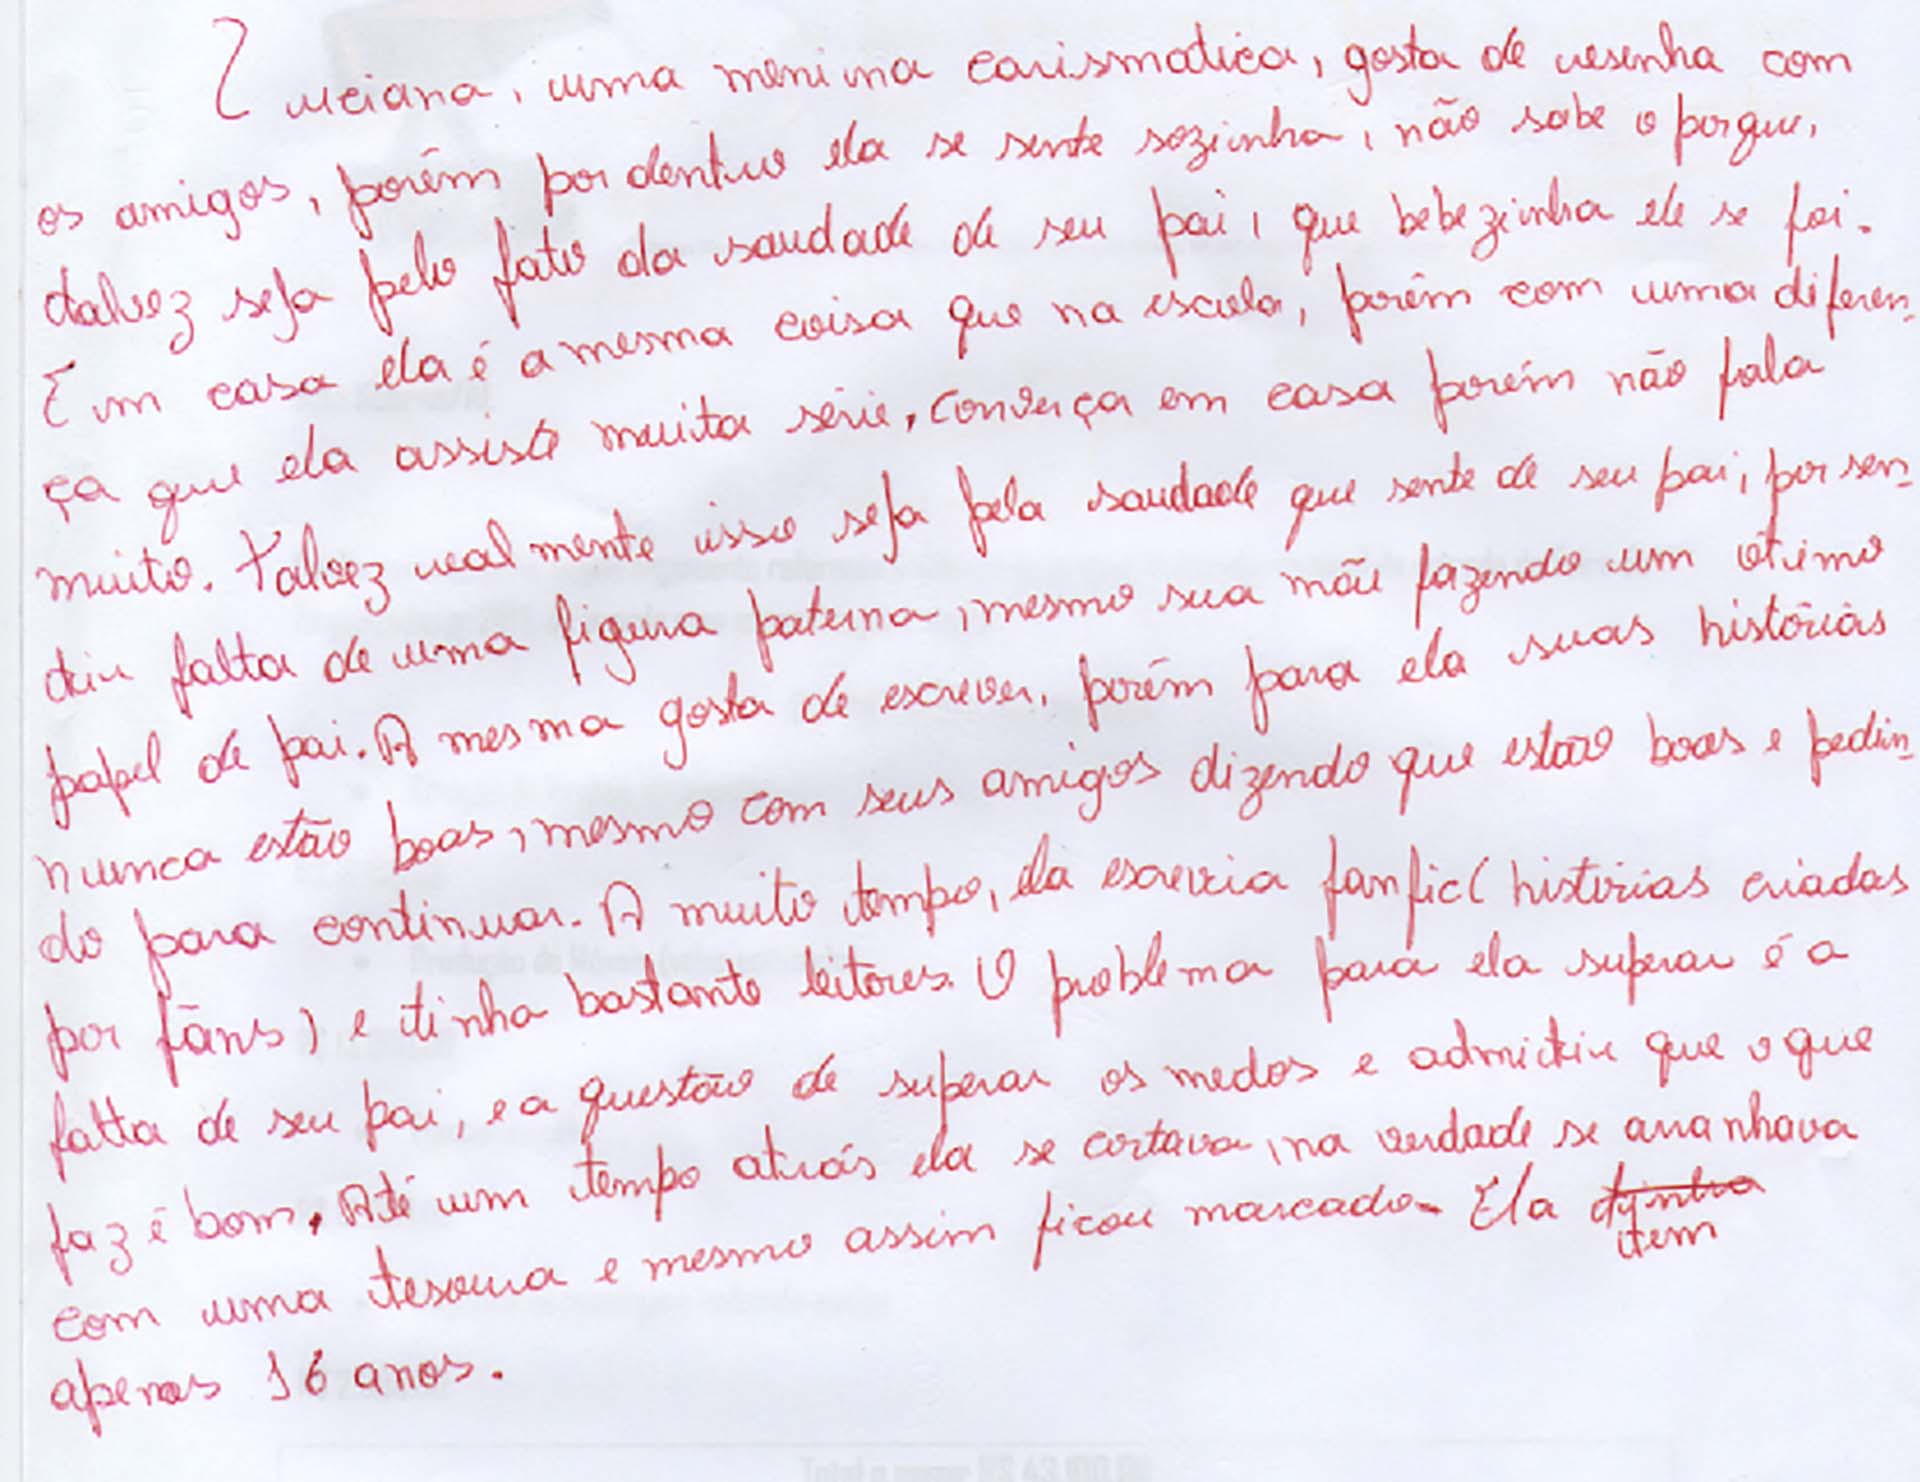 Luciana, uma menina carismatica, gosta de resenha com
os amigos, porém por dentro ela se sente sozinha, não sabe o porque,
talvez seja pelo fato da saudade de seu pai, que bebezinha ele se foi.
Em casa ela é a mesma coisa que na escola, porém com uma diferen-
ça que ela assiste muita série, converça em casa porém não fala
muito. Talvez realmente isso seja pela saudade que sente de seu pai, por sen-
tir falta de uma figura paterna, mesmo sua mãe fazendo um otimo
papel de pai. A mesma gosta de escrever, porém para ela suas histórias
nunca estão boas, mesmo com seus amigos dizendo que estão boas e pedin-
do para continuar. A muito tempo, ela escrevia fanfic( histórias criadas
por fãns) e tinha bastante leitores. O problema para ela superar é a
falta de seu pai, e a questão de superar os medos e admitir que o que
faz é bom. Até um tempo atrás ela se cortava, na verdade se arranhava
com uma tesoura e mesmo assim ficou marcado. Ela tinha
tem
apenas 16 anos.